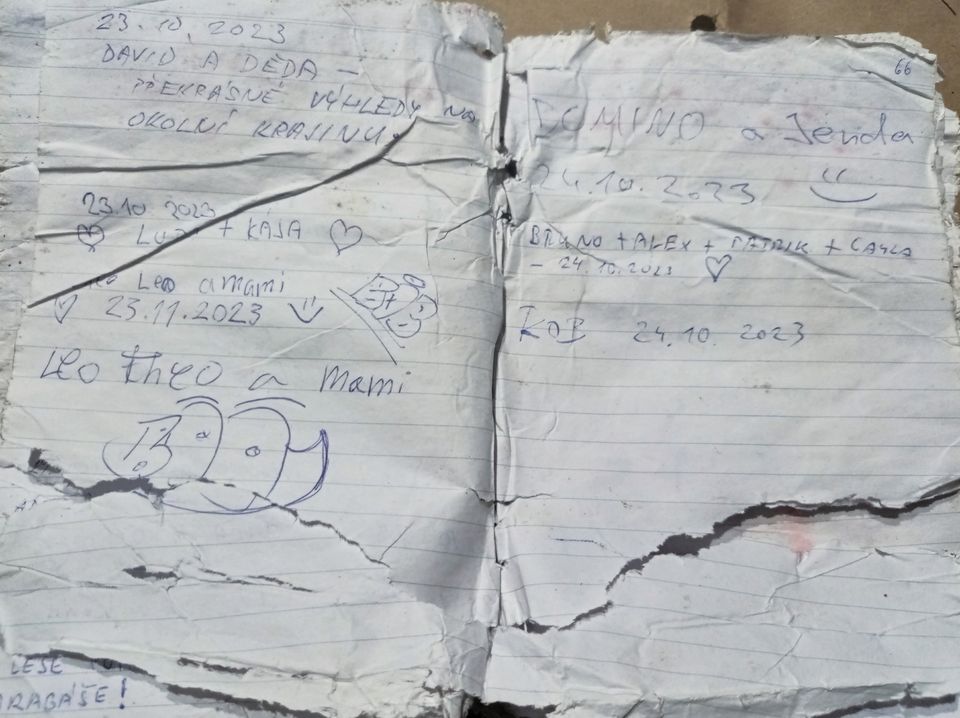 23.10.2023
DAVID A DĚDA –
PŘEKRÁSNÉ VÝHLEDY NA
OKOLNÍ KRAJINU.
23.10 2023
♡ + KÁJA ♡
Leo a mami
♡ 23.11.2023
Leo theo a mami
LESE
ARABÁŠE!
66
DOMINO a Jenda
24.10.2023
BRUNO + ALEX + PATRIK +
– 24.10.2023 ♡
24.10. 2023